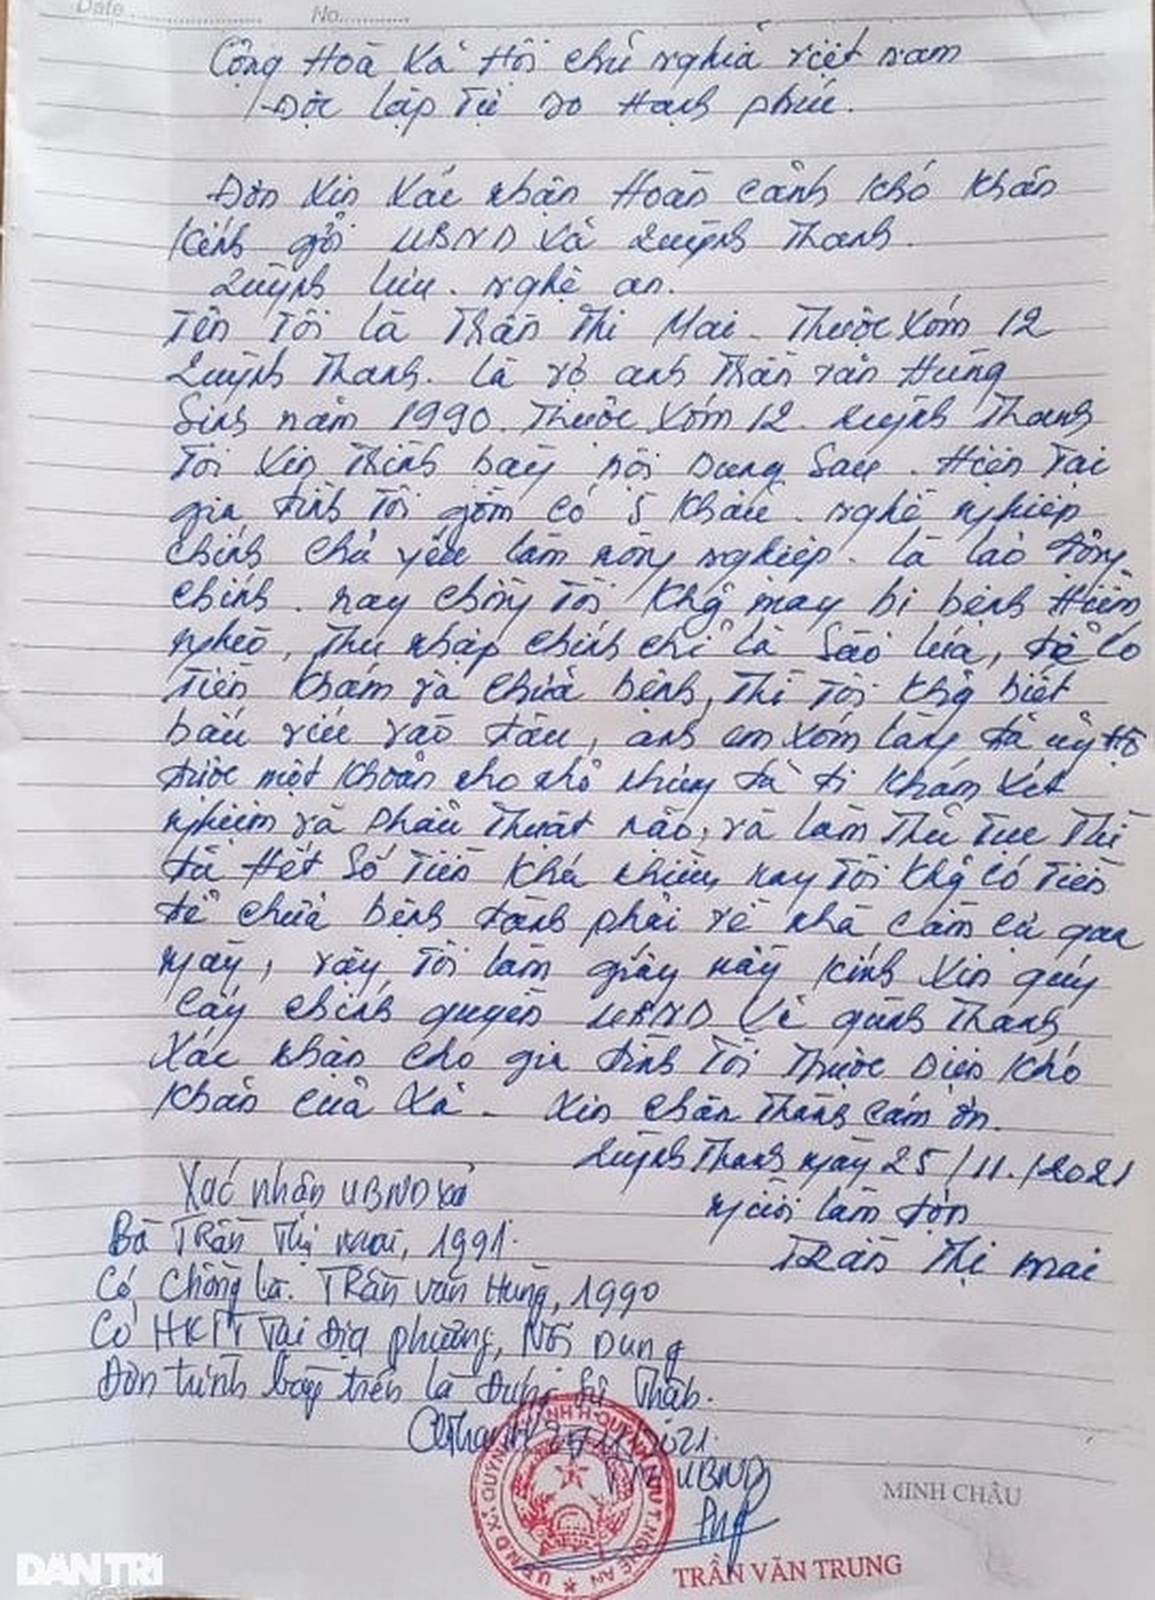 Date No.
Cộng Hoà Xã Hội chủ nghĩa việt nam
Độc lập Tự Do Hạnh phúc.
Đơn Xin Xác nhận Hoàn cảnh khó khăn
Kính gửi UBND Xã Quỳnh Thanh.
Quỳnh lưu. nghệ an.
Tên Tôi là Trần Thị Mai. Thuộc Xóm 12
Quỳnh Thanh. là vợ anh Trần văn Hùng
Sinh năm 1990. Thuộc Xóm 12. Quỳnh Thanh
Tôi Xin Trình bày nội Dung Sau. Hiện Tại
gia đình Tôi gồm có 5 khẩu. nghề nghiệp
chính chủ yếu làm nông nghiệp. là lao động
chính. nay chồng Tôi khg may bị bệnh Hiểm
nghèo, Thu nhập chính chỉ là Sào lúa, để có
Tiền khám và chữa bệnh, Thì Tôi khg biết
bấu víu vào đâu, anh em xóm làng đã ủng hộ
được một khoản nho nhỏ nhưng đã đi khám xét
nghiệm và phẫu Thuật não, và làm Thủ Tục Thì
đã Hết Số Tiền khá nhiều nay Tôi khg có Tiền
để chữa bệnh đành phải về nhà cầm cự qua
ngày, vậy Tôi làm giấy này kính xin quý
cấy chính quyền UBND quỳnh Thanh
Xác nhận cho gia đình Tôi Thuộc Diện khó
khăn của Xã. Xin chân Thành cảm ơn.
Quỳnh Thanh ngày 25/11./2021
người làm đơn
Trần Thị mai
Xác nhân UBND xã
Bà Trần Thị Mai, 1991.
Có chồng là. Trần văn Hùng, 1990
Có HKTT Tại địa phương, Nội Dung
Đơn trình bày trên là đúng Sự Thật.
QThanh 25/11/2021.
TM UBND
U.B.N.D X. QUỲNH THANH H. QUỲNH LƯU T. NGHỆ AN
MINH CHÂU
TRẦN VĂN TRUNG
DÂN TRÍ